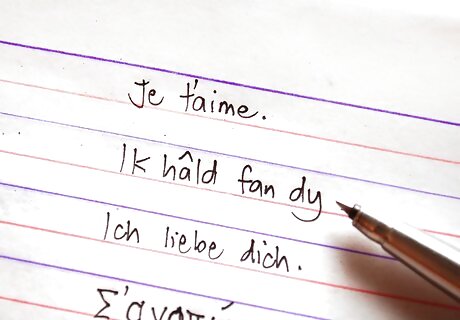 Je t'aime.
Ik hâld fan dy
Ich liebe dich.